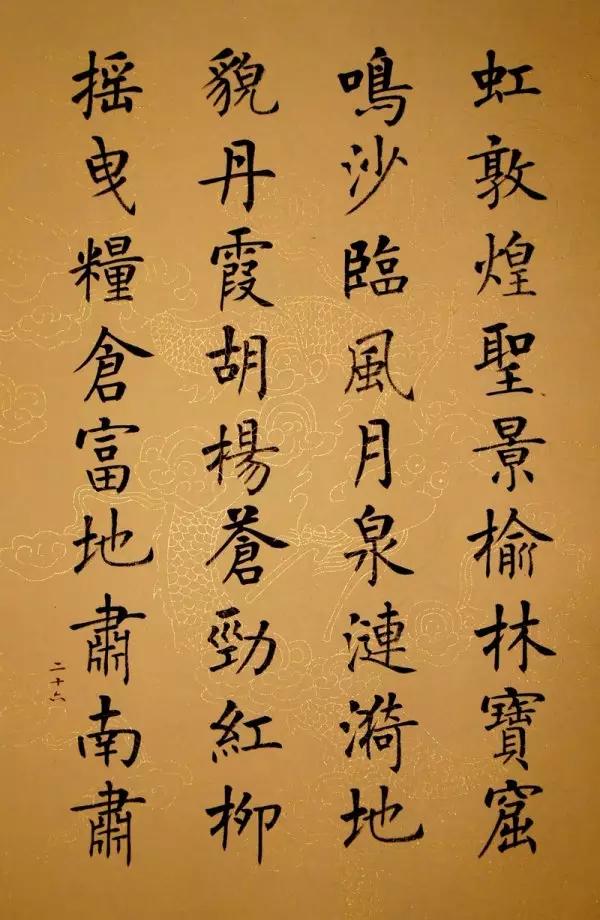 虹敦煌聖景榆林寶窟
鳴沙臨風月泉漣漪地
貌丹霞胡楊蒼勁紅柳
摇曳糧倉富地肅南肅
二十六